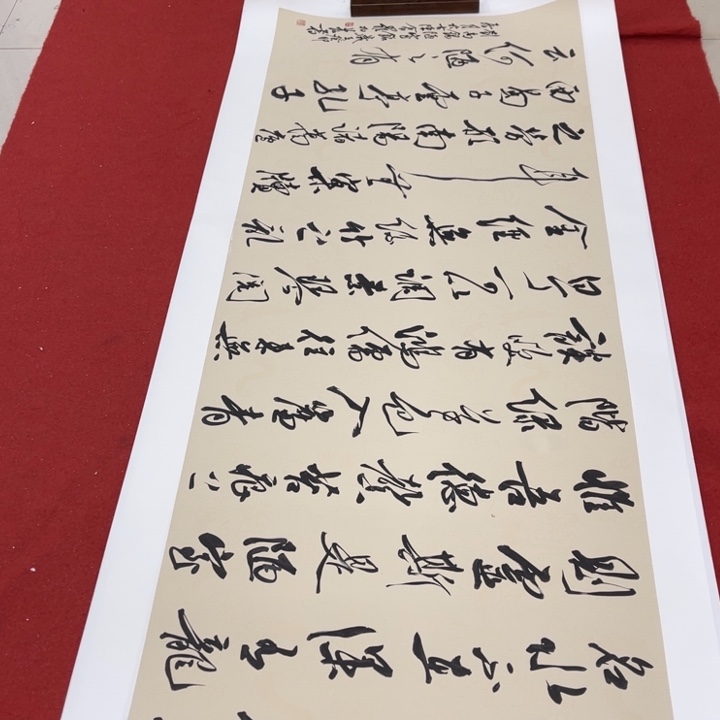 名水不在深有龍
則靈斯是陋室
惟吾德馨苔痕上
階綠草色入簾青
談笑有鴻儒往來無
白丁可以調素琴閱
金經無絲竹之亂
耳無案牘
之勞形南陽諸葛廬
西蜀子雲亭孔子
云何陋之有
劉禹錫陋室銘